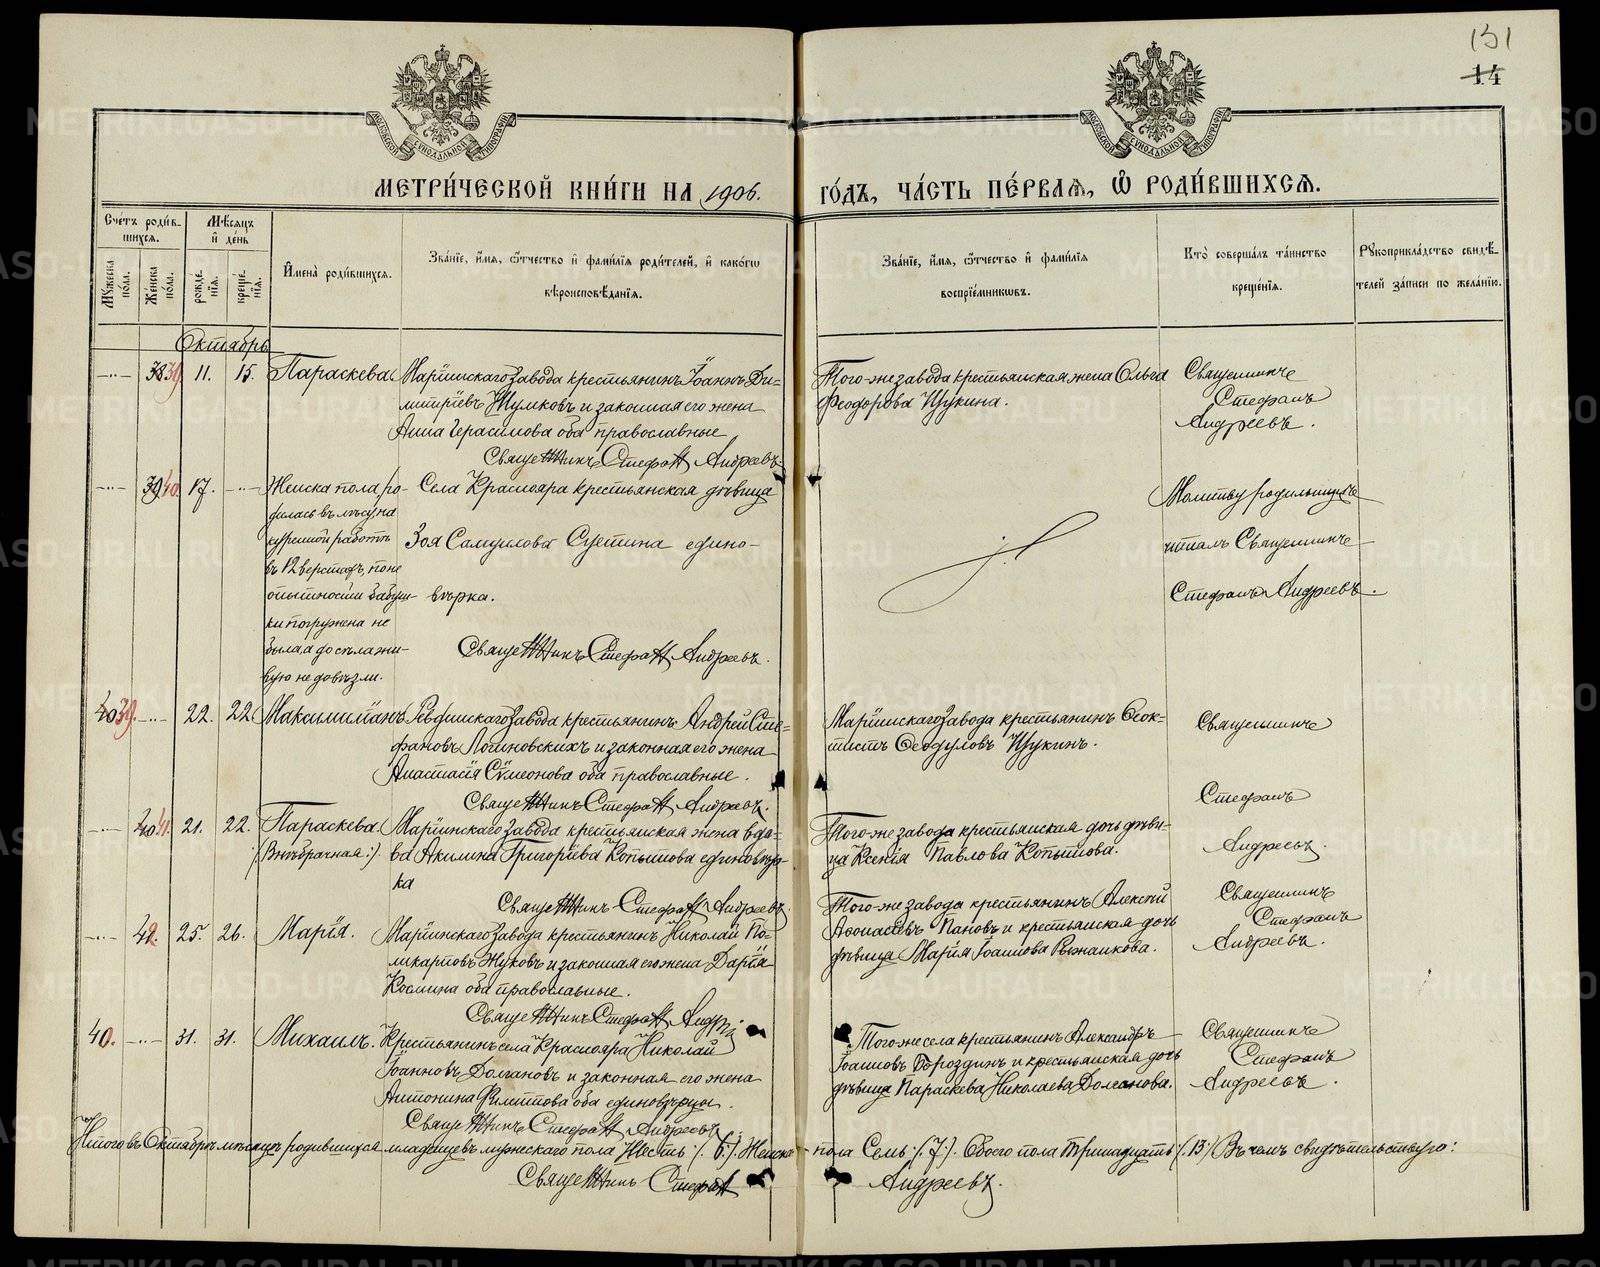 131
14
МОСКОВСКОЙ СѴНОДАЛЬНОЙ ТИПОГРАФІИ
МОСКОВСКОЙ СѴНОДАЛЬНОЙ ТИПОГРАФІИ
МЕТРИ́ЧЕСКОЙ КНИ́ГИ НА 1906. ГО́ДЪ, ЧА́СТЬ ПЕ́РВАѦ, Ѡ҆ РОДИ́ВШИХСѦ.
Сче́тъ роди́в-
шихсѧ.
Мѣ́сѧцъ
и҆ де́нь
Му́жеска
по́ла.
Же́нска
по́ла.
рожде́-
нїѧ.
креще́-
нїѧ.
И҆мена̀ роди́вшихсѧ.
Зва́нїе, и҆́мѧ, ѻ҆́тчество и҆ фами́лїѧ роди́телей, и҆ како́гѡ
вѣроисповѣ́данїѧ.
Зва́нїе, и҆́мѧ, ѻ҆́тчество и҆ фами́лїѧ
воспрїе́мникѡвъ.
Кто̀ соверша́лъ та́инство
креще́нїѧ.
Рꙋкоприкла́дство свидѣ́-
телей за́писи по жела́нїю.
Октябрь
38 39 11. 15. Параскева
Маріинскаго завода крестьянинъ Іоаннъ Ди-
митріевъ Шумковъ и законная его жена
Анна Герасимова оба православные
Священникъ Стефанъ Андреевъ
Того-же завода крестьянская жена Ольга
Феодорова Щукина.
Священникъ
Стефанъ
Андреевъ.
39 40. 17.
Женска пола ро-
дилась въ лѣсу, на
куренной работѣ
въ 12 верстахъ, по не
опытности бабуш-
ки погружена не
была, а до села жи-
вую не довезли.
Села Краснояра крестьянская дѣвица
Зоя Самуилова Суетина едино-
вѣрка.
Священникъ Стефанъ Андреевъ.
Молитву родильницѣ
читалъ Священникъ
Стефанъ Андреевъ.
40 39. 22. 22. Максимиліанъ
Ревдинскаго завода крестьянинъ Андрей Сте-
фановъ Логиновскихъ и законная его жена
Анастасія Сѵмеонова оба православные.
Священникъ Стефанъ Андреевъ.
Маріинскаго завода крестьянинъ Ѳеок-
тистъ Ѳеодуловъ Щукинъ.
Священникъ
Стефанъ
Андреевъ.
40 41. 21. 22. Параскева.
(Внѣбрачная:).
Маріинскаго завода крестьянская жена вдо-
ва Акилина Григоріева Копытова единовѣр-
ка
Священникъ Стефанъ Андреевъ.
Того-же завода крестьянская дочь дѣви-
ца Ксенія Павлова Копытова.
42. 25. 26. Марія.
Маріинскаго завода крестьянинъ Николай По-
ликарповъ Жуковъ и законная его жена Дарія
Космина оба православные.
Священникъ Стефанъ Андрей
Того-же завода крестьянинъ Алексѣй
Аѳонасіевъ Пановъ и крестьянская дочь
дѣвица Марія Іоаннова Рыжанкова.
Священникъ
Стефанъ
Андреевъ.
40. 31. 31. Михаилъ.
Крестьянинъ села Краснояра Николай
Іоанновъ Долгановъ и законная его жена
Антонина Филиппова оба единовѣрцы.
Священникъ Стефанъ Андреевъ
Того-же села крестьянинъ Александръ
Іоанновъ Бороздинъ и крестьянская дочь
дѣвица Параскева Николаева Долганова.
Священникъ
Стефанъ
Андреевъ.
Итого въ Октябрѣ мѣсяцѣ родившихся младенцевъ мужескаго пола Шесть /. 6./. Женска пола Семь /. 7./. Обоего пола Тринадцать (. 13.) Въ чемъ свидѣтельствую:
Священникъ Стефанъ Андреевъ.